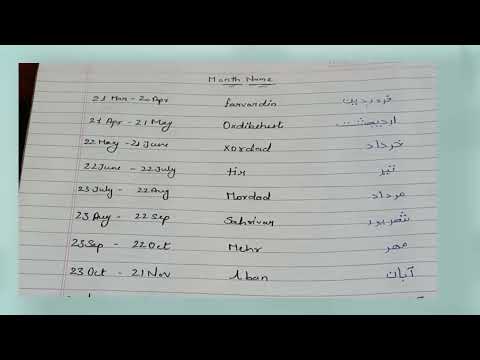 Month Name
21 Mar - 20 Apr farvardin فروردین
21 Apr - 21 May Ordibehest اردیبهشت
22 May - 21 June xordad خرداد
22 June - 22 July tir تیر
23 July - 22 Aug Mordad مرداد
23 Aug - 22 Sep Sahrivar شهریور
23 Sep - 22 Oct Mehr مهر
23 Oct - 21 Nov Aban آبان